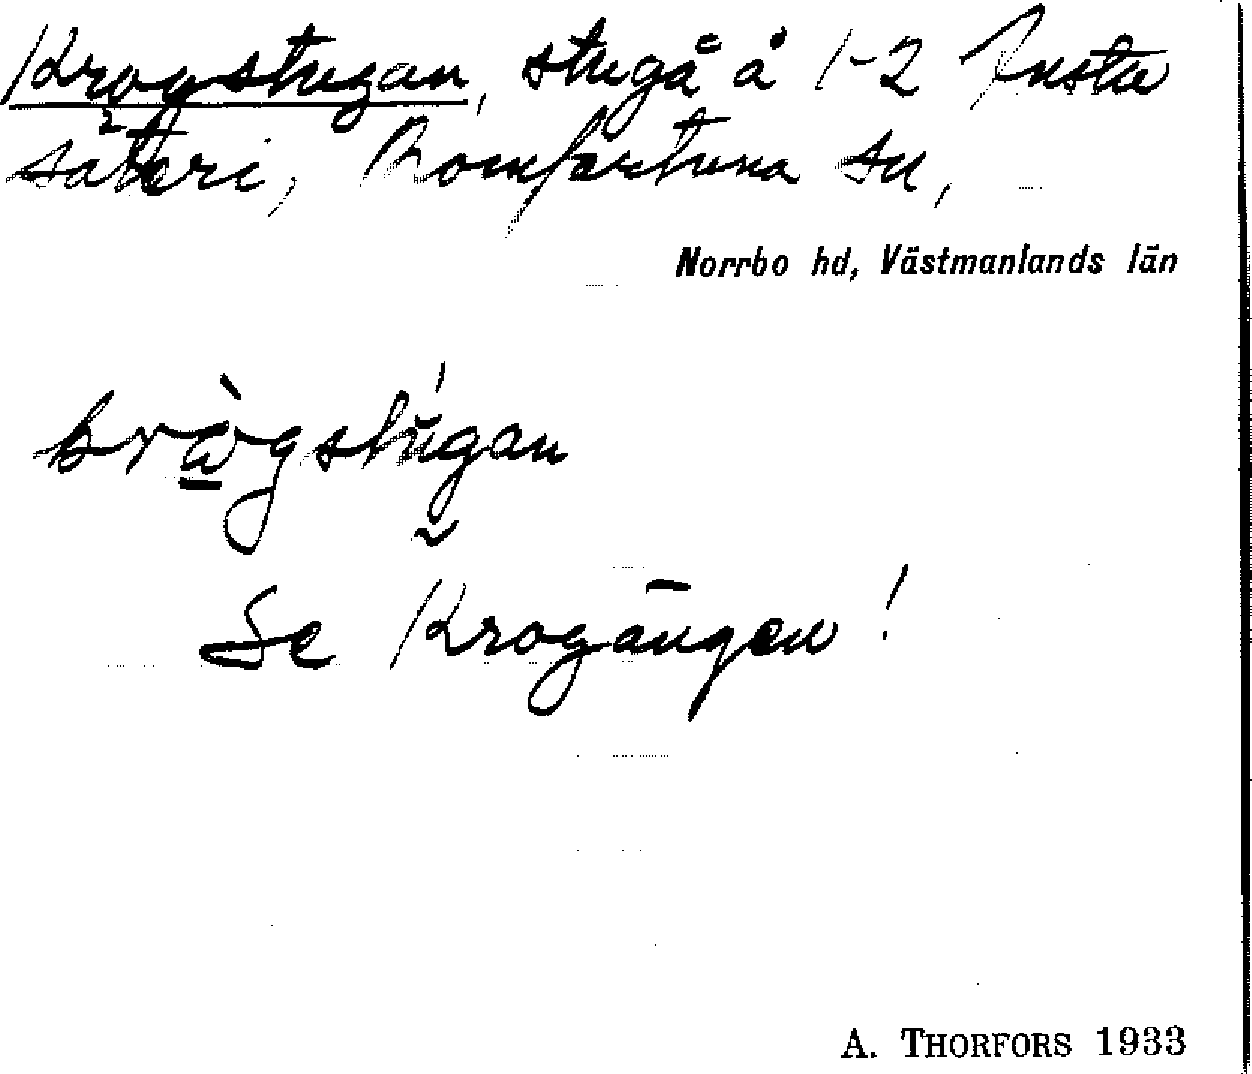 Krogstugan, stuga å 1-2 Insta
säteri, Romfartuna sn,
Norrbo hd, Västmanlands län
kràgstúgan
Se Krogängen!
A. THORFORS 1933